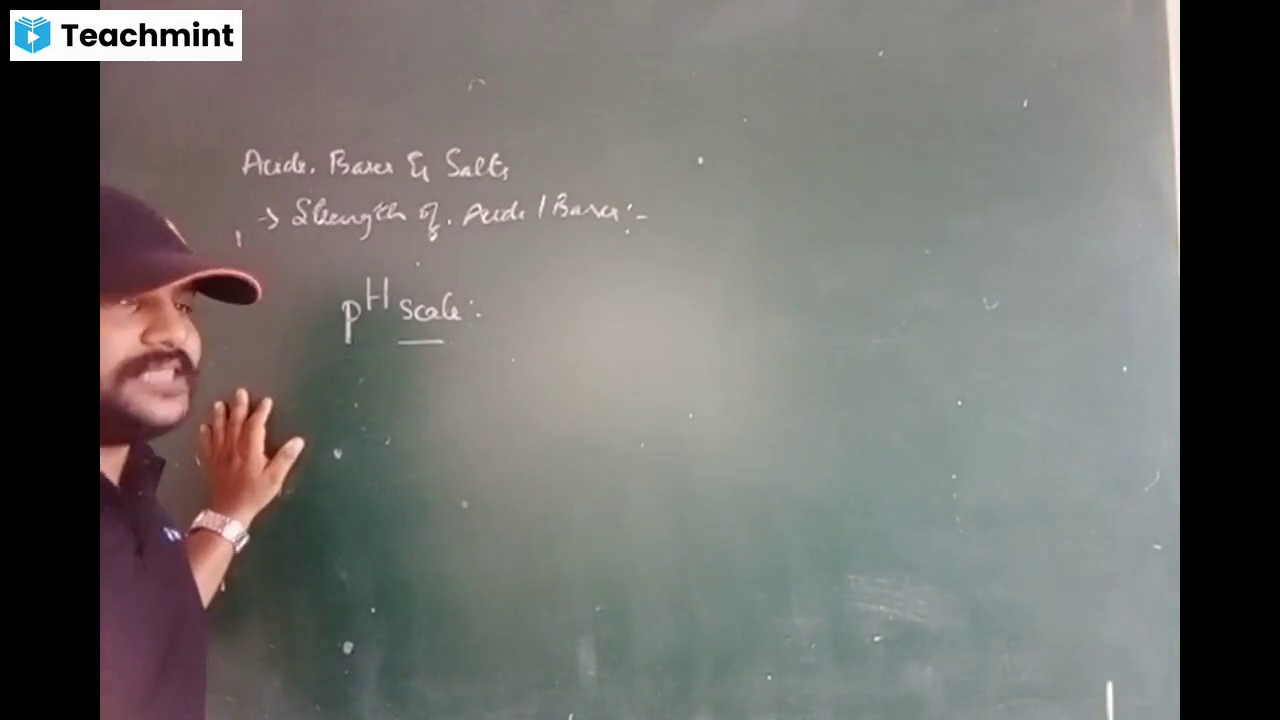 Teachmint
Acids, Bases & Salts
→ Strength of. Acids / Bases:-
pH scale: